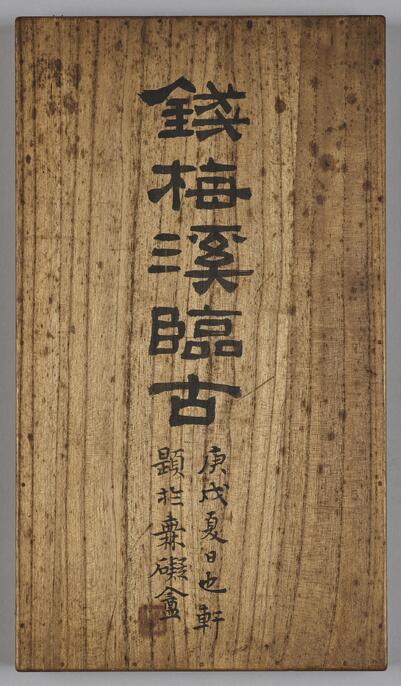 錢梅溪臨古
庚戌夏日也軒
題於橆礙盦